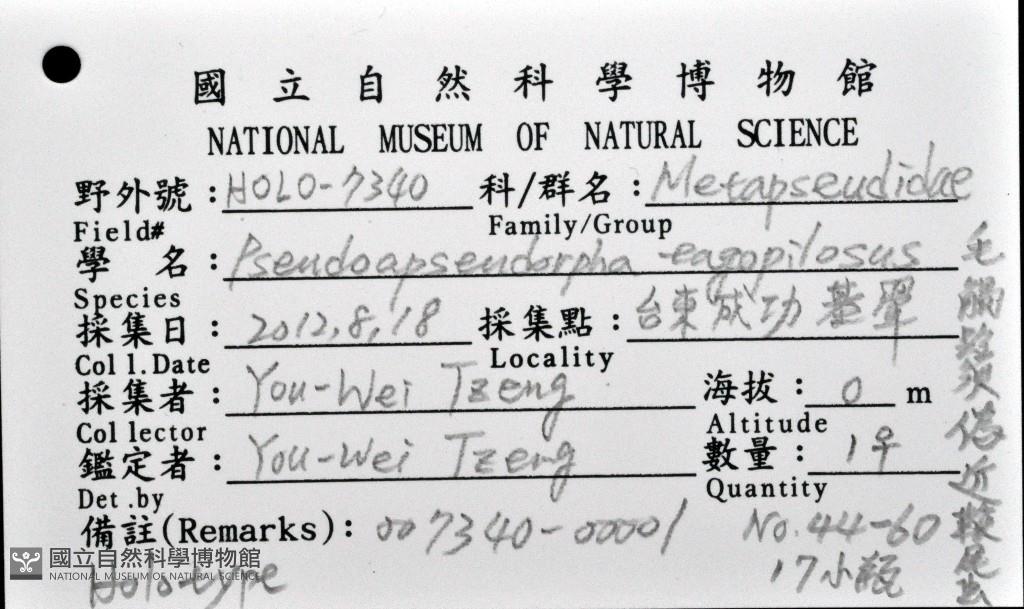 國立自然科學博物館
NATIONAL MUSEUM OF NATURAL SCIENCE
野外號：HOLO-7340 科/群名：Metapseudidae
Field# Family/Group
學 名：Pseudoapseudorpha eagopilosus
Species
採集日：2012.8.18 採集點：台東成功基翬
Coll.Date Locality
採集者：You-Wei Tzeng 海拔：0 m
Collector Altitude
鑑定者：You-Wei Tzeng 數量：1♀
Det.by Quantity
備註(Remarks)：007340-00001 No.44-60
Holotype 17小瓶
國立自然科學博物館
NATIONAL MUSEUM OF NATURAL SCIENCE
毛 近 尾虫